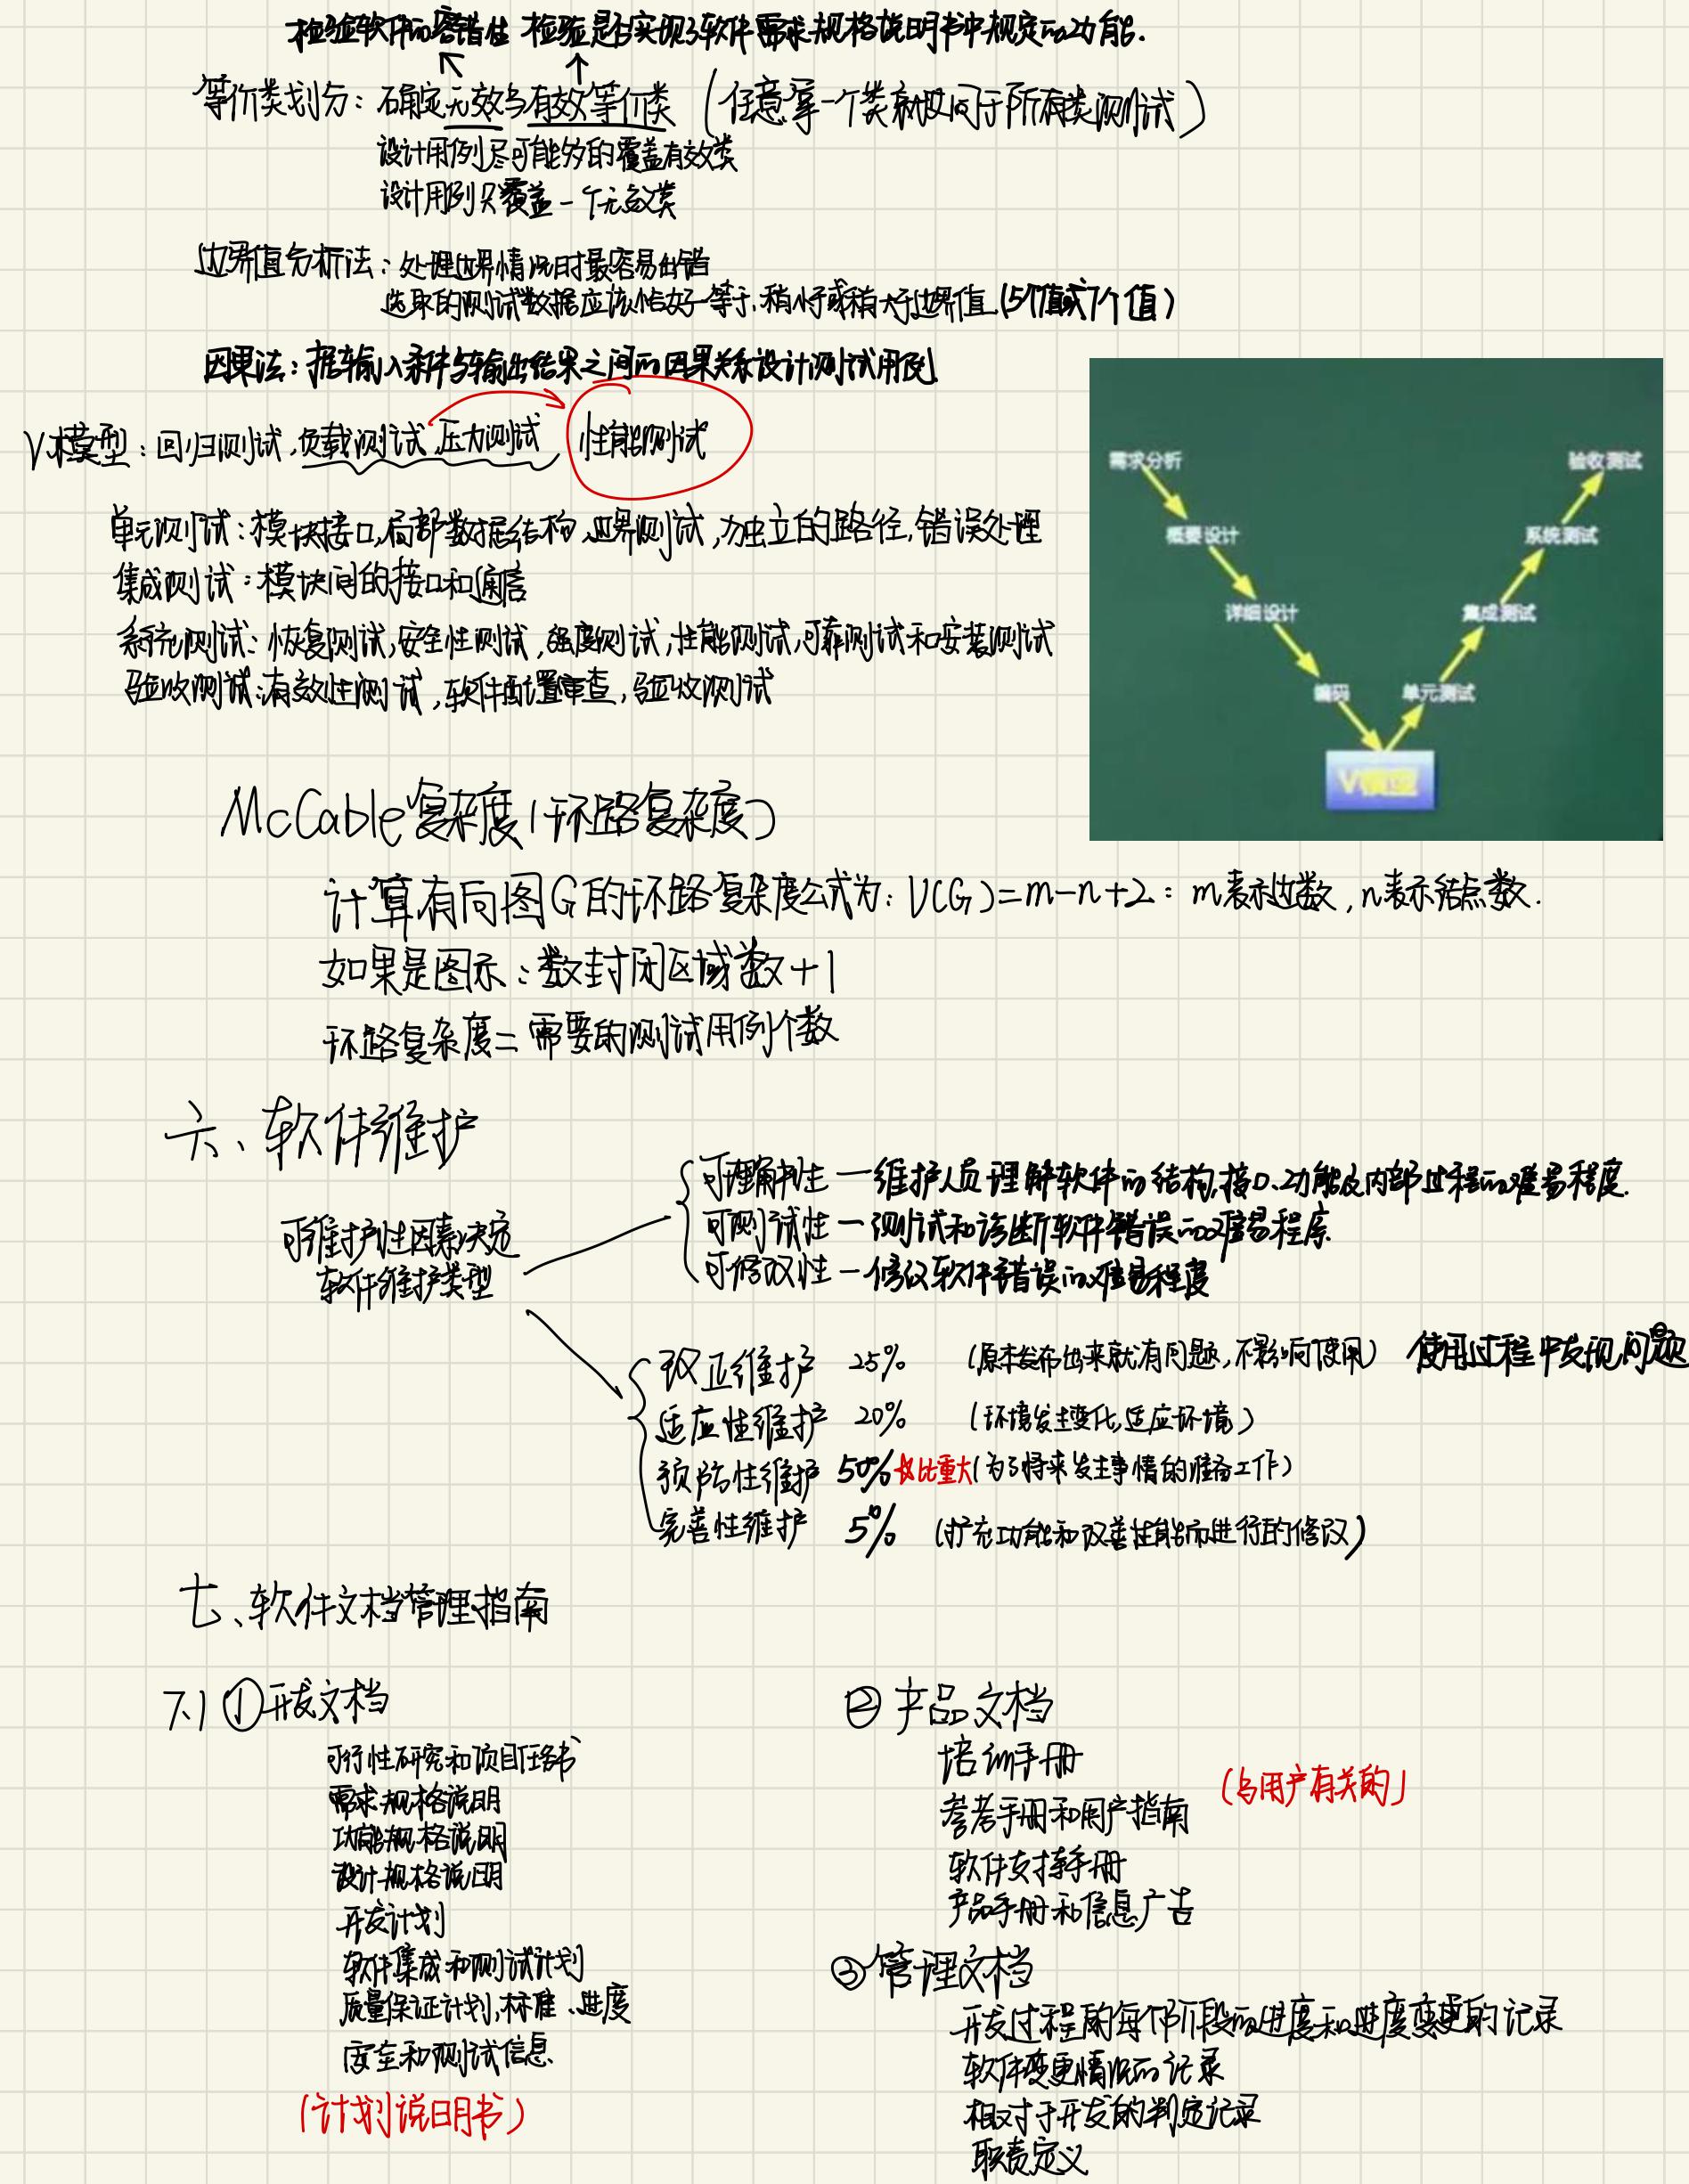 检验软件的容错性 检验是否实现了软件需求规格说明书中规定的功能.
等价类划分：确定无效与有效等价类 （任意拿一个类就等同于所有类测试）
设计用例尽可能多的覆盖有效类
设计用例只覆盖一个无效类
边界值分析法：处理边界情况时最容易出错
选取的测试数据应该恰好等于、稍小于或稍大于边界值（5个值或7个值）
因果法：把输入条件与输出结果之间的因果关系设计测试用例
V模型：回归测试，负载测试，压力测试 性能测试
单元测试：模块接口，局部数据结构，边界测试，独立的路径，错误处理
集成测试：模块间的接口和通信
系统测试：恢复测试，安全性测试，强度测试，性能测试，可靠测试和安装测试
验收测试：有效性测试，软件配置审查，验收测试
需求分析
验收测试
概要设计
系统测试
详细设计
集成测试
编码
单元测试
V模型
McCable复杂度（环路复杂度）
计算有向图G的环路复杂度公式为：V(G)=m-n+2：m表示边数，n表示结点数.
如果是图示：数封闭区域数+1
环路复杂度=需要的测试用例个数
六、软件维护
可维护性因素决定
软件维护类型
可理解性 — 维护人员理解软件的结构、接口、功能及内部过程的难易程度.
可测试性 — 测试和诊断软件错误的难易程序.
可修改性 — 修改软件错误的难易程度
改正维护 25% （原本发布出来就有问题，不影响使用） 使用过程中发现问题
适应性维护 20% （环境发生变化，适应环境）
预防性维护 50% 比重大（为了将来发生事情的准备工作）
完善性维护 5% （扩充功能和改善性能而进行的修改）
七、软件文档管理指南
7.1 ①开发文档
可行性研究和项目任务书
需求规格说明
功能规格说明
设计规格说明
开发计划
软件集成和测试计划
质量保证计划，标准、进度
安全和测试信息
（计划说明书）
② 产品文档
培训手册
参考手册和用户指南
软件支持手册
产品手册和信息广告
（与用户有关的）
③ 管理文档
开发过程的每个阶段的进度和进度变更的记录
软件变更情况的记录
相对于开发的判定记录
职责定义